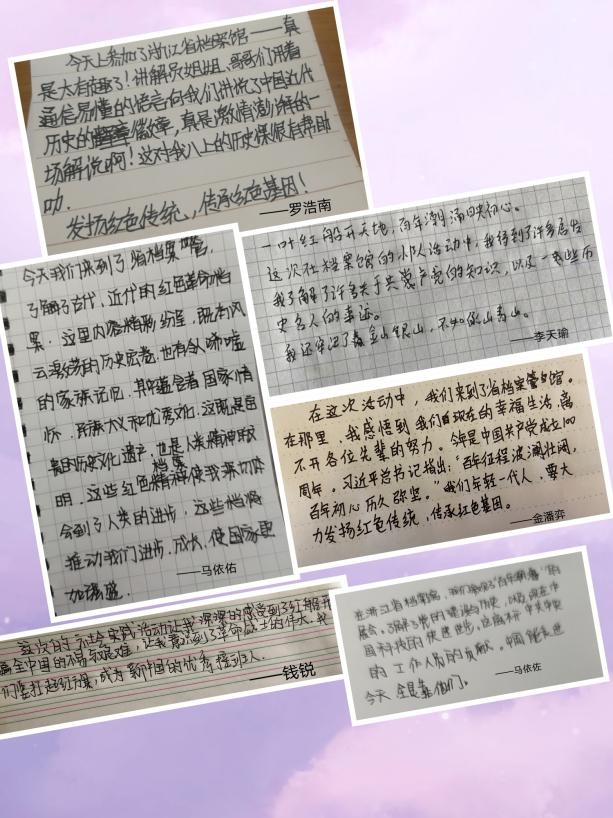 今天上参加了浙江省档案馆——真
是太有趣了！讲解员姐姐、哥哥们用着
通信易懂的语言向我们讲说了中国近代
历史的徽章，真是激情澎湃的一
场解说啊！这对我八上的历史课很有帮助
叻．
发扬红色传统，传承红色基因！
——罗浩南
一叶红船开天地，百年潮涌映初心。
这次社档案馆的小人活动中，我得到了许多启发
我了解了许多关于共产党的知识，以及一些历
史名人的事迹。
我还牢记了金山银山，不如绿水青山。
——李天瑜
今天我们来到了省档案馆，
了解了古代、近代的红色革命档
案．这里内容精彩纷呈，既有风
云激荡的历史宏卷，也有令人唏嘘
的家族记忆．其中蕴含着国家情
怀、民族大义和优秀文化．这既是宝
贵的历史文化遗产，也是人类精神的
明．这些红色档案使我深切体
会到了人类的进步，这些档案
推动我们进步、成长，使国家更
加强盛．
——马依佑
在这次活动中，我们来到了省档案馆。
在那里，我感悟到我们现在的幸福生活，离
不开各位先辈的努力。今年是中国共产党成立100
周年。习近平总书记指出：“百年征程波澜壮阔，
百年初心历久弥坚。”我们年轻一代人，要大
力发扬红色传统，传承红色基因。
——金潘弈
这次的社会实践活动让我深深的感受到了红船开
辟全中国的不易与艰难，让我感触到了革命战士的伟大．我
们要扛起红旗，成为新中国的优秀接班人．
——钱锐
在浙江省档案馆，我们参观了“百年”的
展会，了解了党的建造的历史，以及现在中
国科技的快速进步，这离不开中共中央
的工作人员的贡献．中国能走进
今天 全是靠他们。
——马依佐